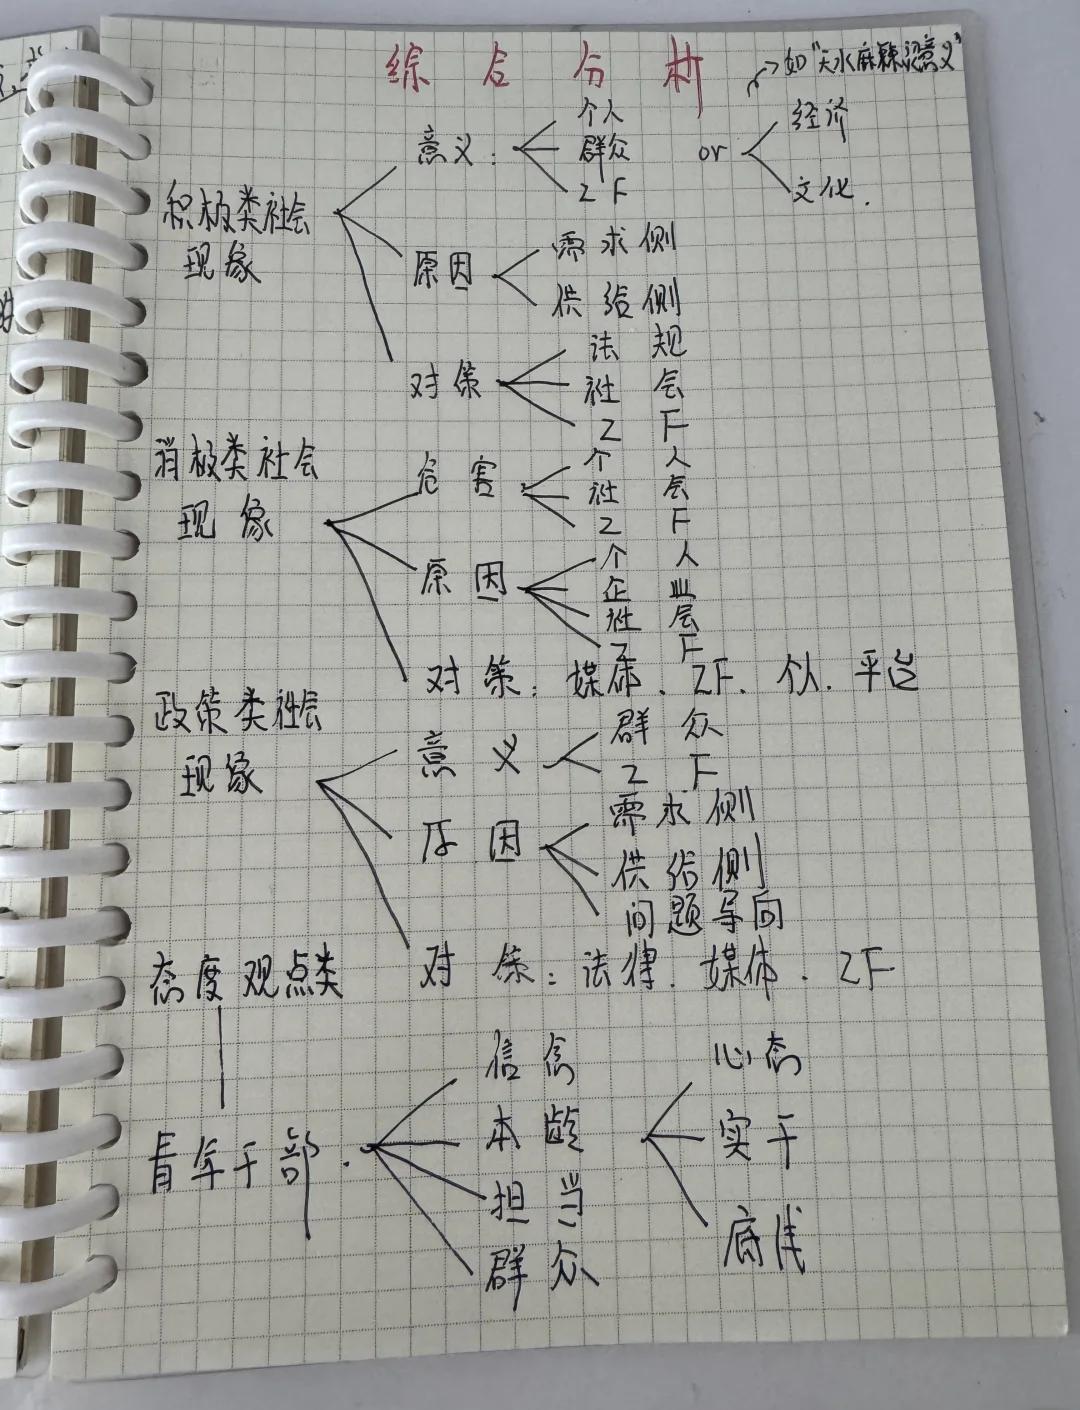 综合分析
如"天水麻辣烫意义"
意义：
个人
群众
ZF
or
经济
文化.
积极类社会
现象
原因
需求侧
供给侧
对策
法规
社会
ZF
消极类社会
现象
危害
个人
社会
ZF
原因
个人
企业
社会
ZF
对策：媒体.ZF.个人.平台
政策类社会
现象
意义
群众
ZF
原因
需求侧
供给侧
问题导向
对策：法律.媒体.ZF
态度观点类
青年干部.
信念
本领
担当
群众
心态
实干
底线